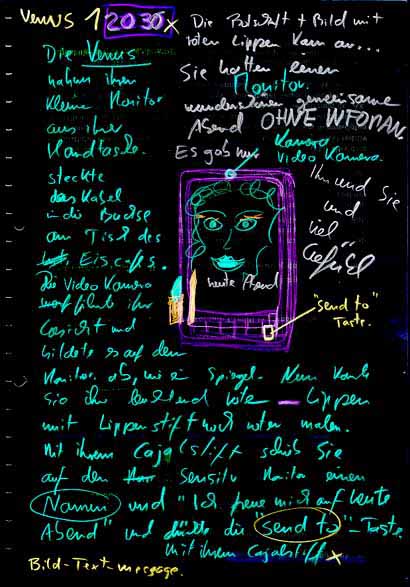 Venus 1 2030 x
Die Botschaft + Bild mit
roten Lippen kam an...
Sie hatten einen
Monitor.
wunderschönen gemeinsame
Abend OHNE
Es gab nur
Kamera
Video Kamera.
Ihn und Sie
und
viel
Gefühl
Die Venus
nahm ihren
kleine Monitor
aus ihrer
Handtasche.
steckte
das Kabel
in die Buchse
am Tisch des
Eiscafes.
Die Video Kamera
ihr
Gesicht und
bildete es auf dem
Monitor ab, wie ein Spiegel. Nun konnte
Sie ihr leuchtend rote Lippen
mit Lippenstift noch roter malen.
Mit ihrem Cajalstift schrieb Sie
auf den Sensitiv Monitor einen
Namen und "Ich freue mich auf heute
Abend" und drückte die "send to"-Taste
mit ihrem Cajalstift x
heute Abend
"send to"
Taste.
Bild-Text-message.